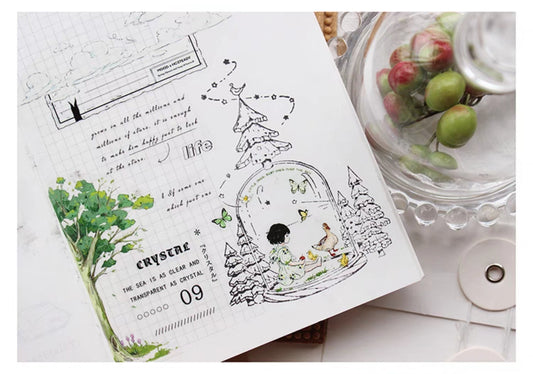 grows in all the millions and
millions of stars, it is enough
to make him happy just to look
at the stars.
life
& If some one
which just one
CRYSTAL
『クリスタル』
THE SEA IS AS CLEAR AND
TRANSPARENT AS CRYSTAL
09